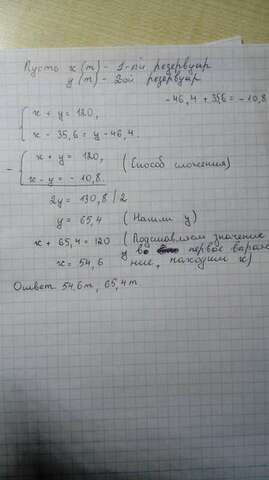 Пусть x (т) - 1-ый резервуар
y (т) - 2ой резервуар
-46,4 + 35,6 = -10,8
x + y = 120,
x - 35,6 = y - 46,4
- x + y = 120, (Способ сложения)
x - y = - 10,8
2y = 130,8 | 2
y = 65,4 (Нашли y)
x + 65,4 = 120 (Подставляем значение
y в первое выраже
x = 54,6 ние, находим x)
Ответ 54,6 т, 65,4 т